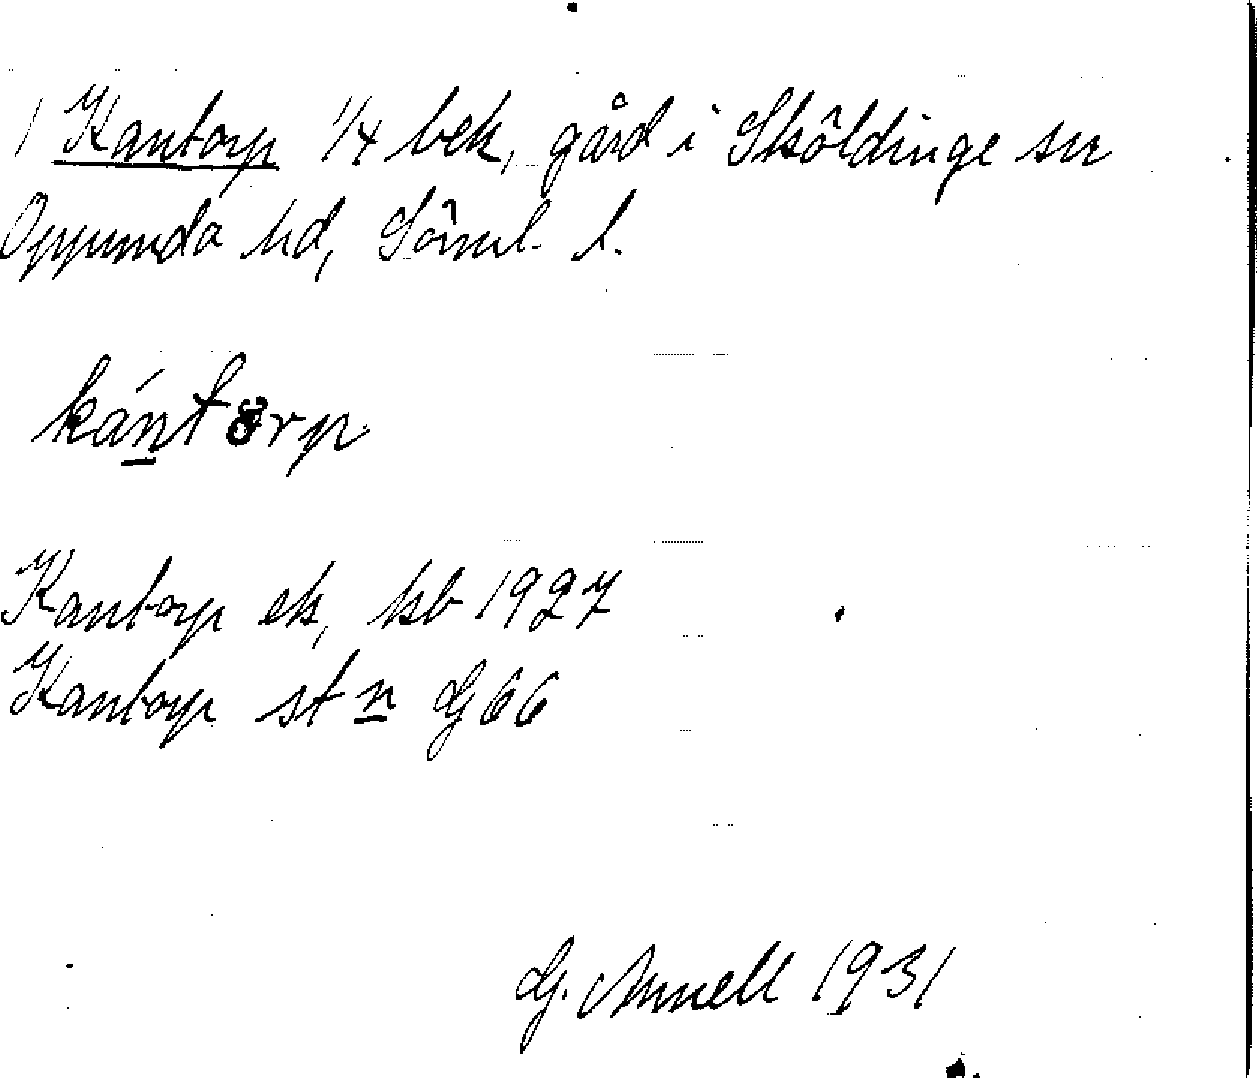 1 Kantorp 1/4 bek, gård i Sköldinge sn
Oppunda hd, Söml. l.
kántorp
Kantorp ek, kb 1927
Kantorp st n G66
G. Annell 1931